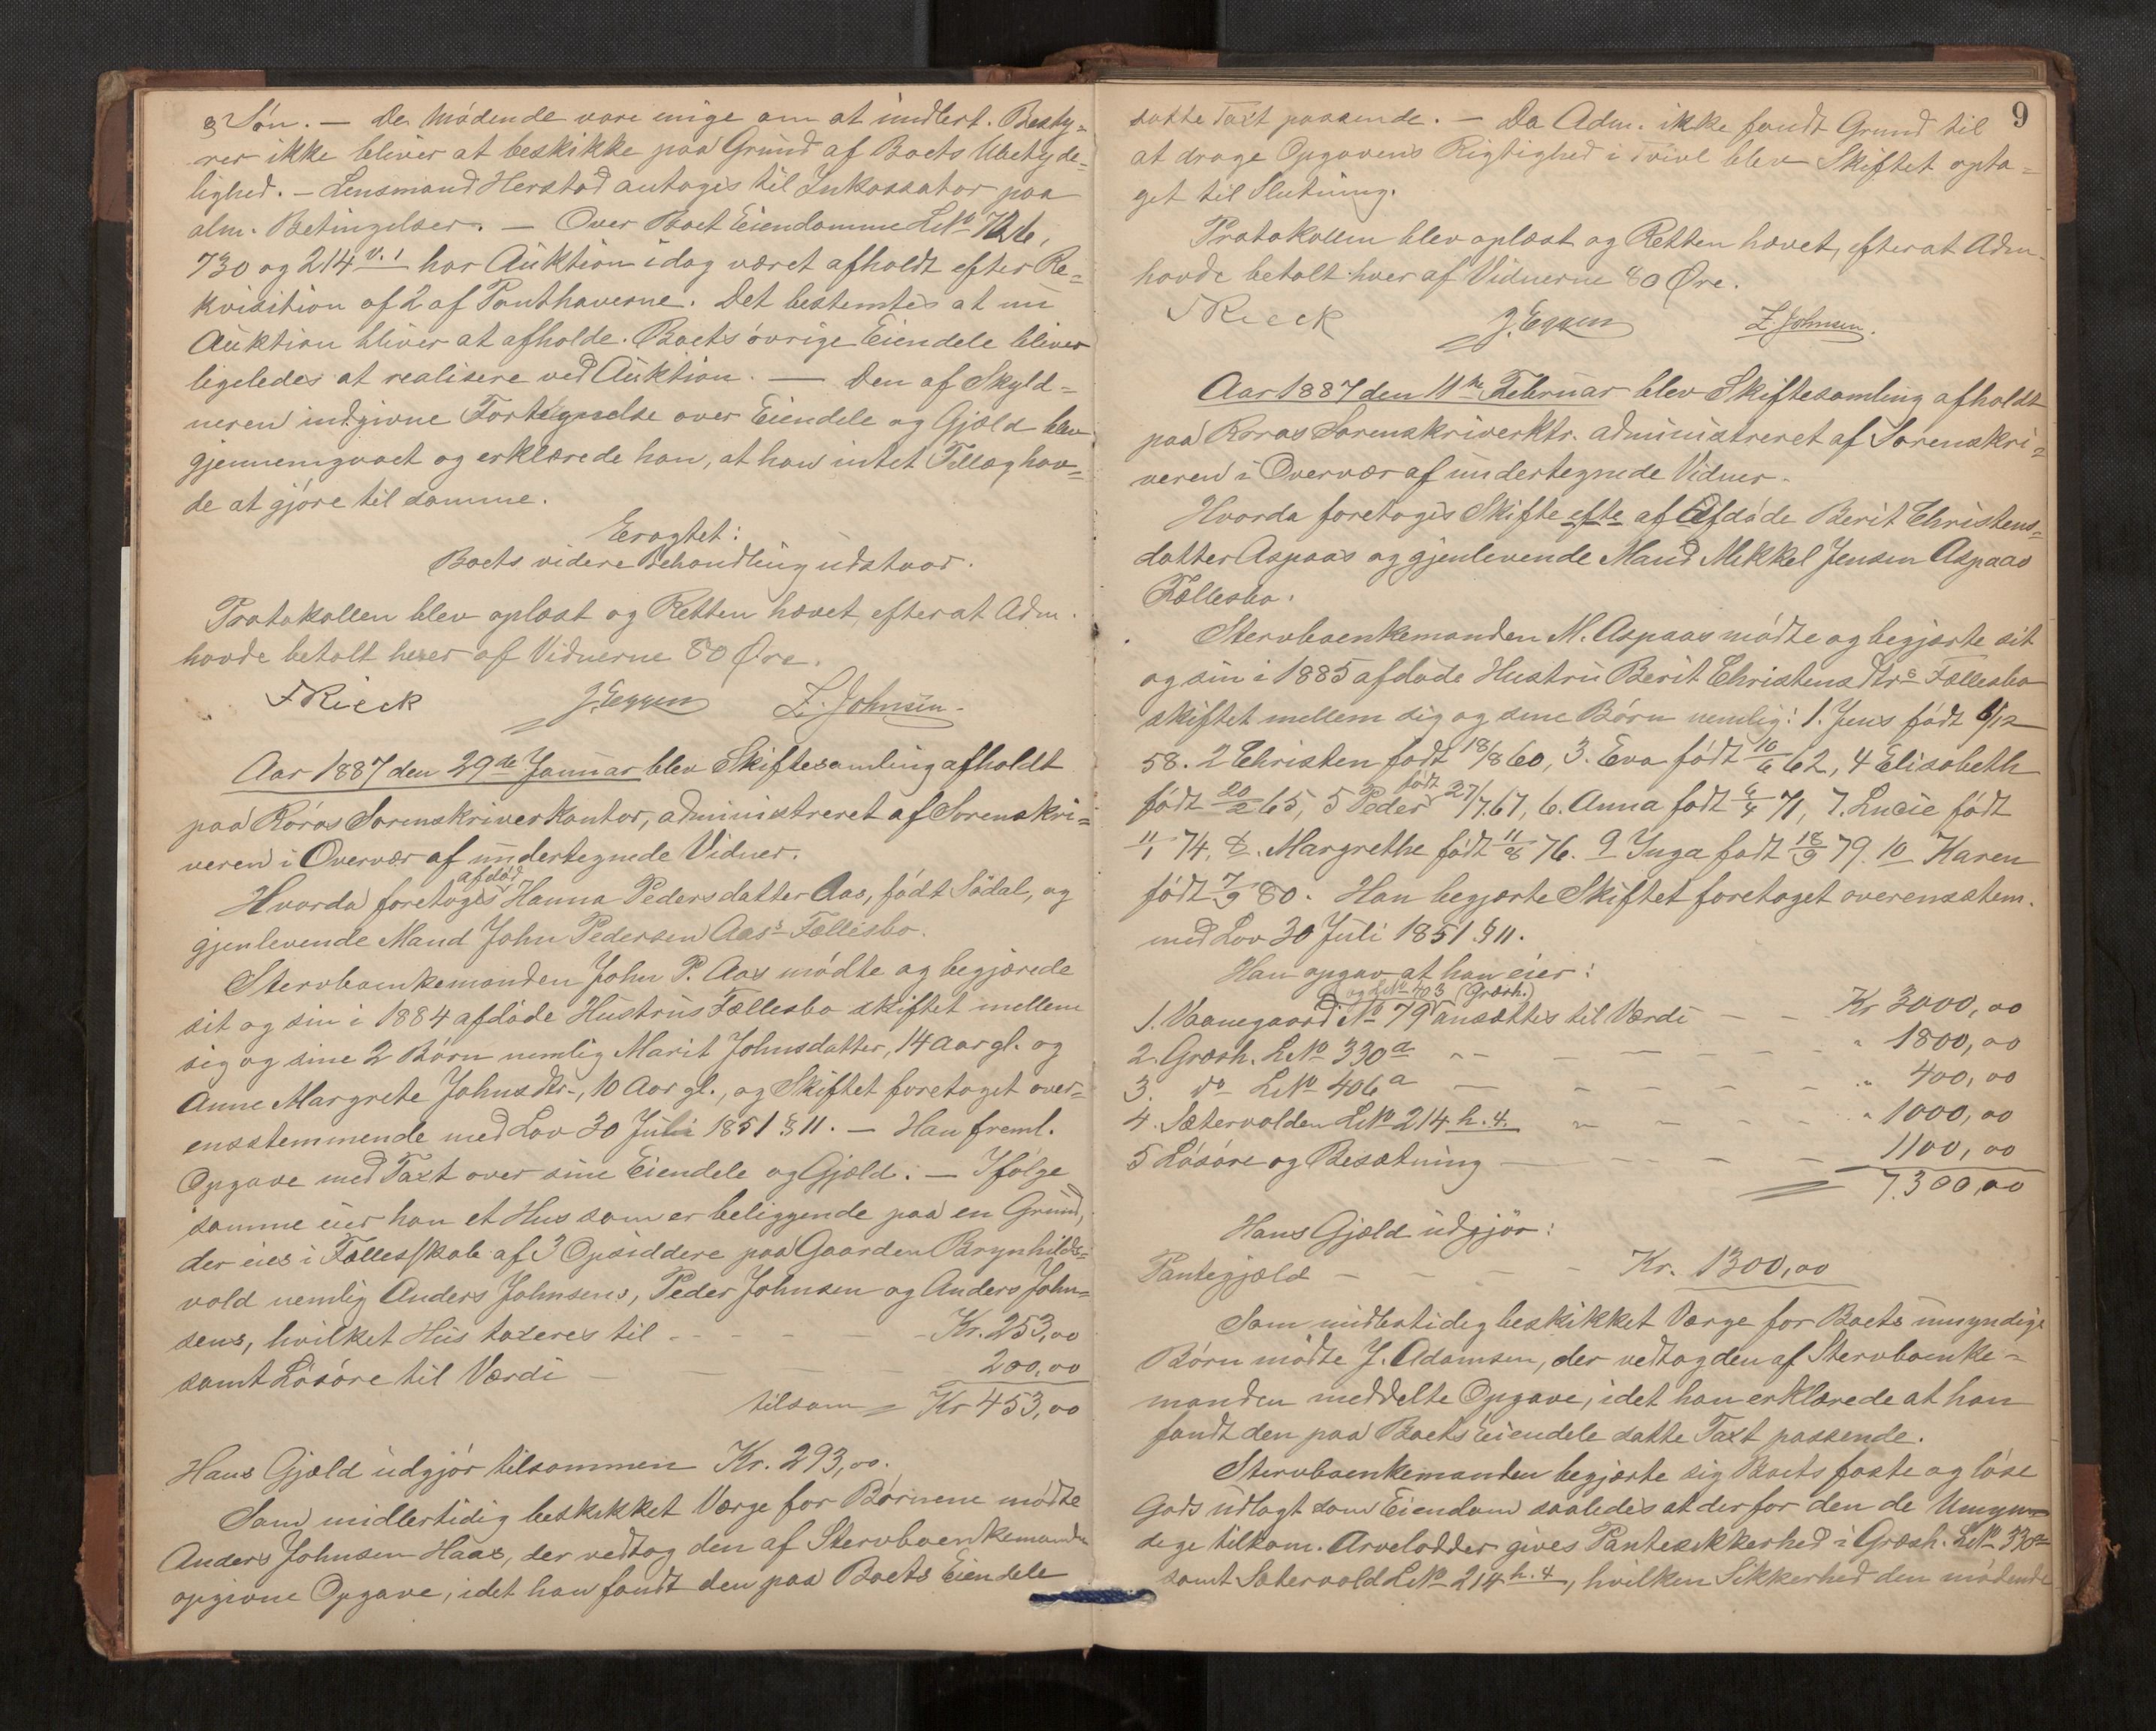 & Søn. — De Mødende vare enige om at midlert. Besty-
rer ikke bliver at beskikke paa Grund af Boets Ubetyde-
lighed. — Lensmand Herstad antoges til Inkassator paa
alm. Betingelser. — Over Boet Eiendomme LNo 726,
730 og 214 v. 1 har Auktion idag været afholdt efter Re-
kvisition af 2 af Panthaverne. Det bestemtes at ny
Auktion bliver at afholde. Boets øvrige Eiendele bliver
ligeledes at realisere ved Auktion. — Den af Skyld-
neren indgivne Fortegnelse over Eiendele og Gjæld blev
gjennemgaaet og erklærede han, at han intet Tillæg hav-
de at gjøre til samme.
Eragtet:
Boets videre Behandling udstaar.
Protokollen blev oplæst og Retten hævet, efterat Adm.
havde betalt hver af Vidnerne 80 Øre.
F Rieck J. Eggen Z. Johnsen.
Aar 1887 den 29de Januar blev Skiftesamling afholdt
paa Røros Sorenskriverkontor, administreret af Sorenskri-
veren i Overvær af undertegnede Vidner.
afdød
Hvorda foretoges Hanna Pedersdatter Aas, født Sødal, og
gjenlevende Mand John Pedersen Aas's Fællesbo.
Stervboenkemanden John P. Aas mødte og begjærede
sit og sin i 1884 afdøde Hustrus Fællesbo skiftet mellem
sig og sine 2 Børn nemlig Marit Johnsdatter, 14 Aar gl. og
Anne Margrete Johnsdtr., 10 Aar gl., og Skiftet foretaget over-
ensstemmende med Lov 30 Juli 1851 § 11. — Han freml.
Opgave med Taxt over sine Eiendele og Gjæld. — Ifølge
samme eier han et Hus som er beliggende paa en Grund,
der eies i Fællesskab af 3 Opsiddere paa Gaarden Brynhilds-
vold nemlig Anders Johnsens, Peder Johnsen og Anders John-
sens, hvilket Hus taxeres til - - - - - Kr. 253,00
samt Løsøre til Værdi — — 200,00
tilsam = Kr 453,00
Hans Gjæld udgjør tilsammen Kr. 293,00.
Som midlertidig beskikket Værge for Børnene mødte
Anders Johnsen Haas, der vedtog den af Stervboenkemanden
opgivne Opgave, idet han fandt den paa Boets Eiendele
9
satte Taxt passende. — Da Adm. ikke fandt Grund til
at drage Opgavens Rigtighed i Tvivl blev Skiftet opta-
get til Slutning.
Protokollen blev oplæst og Retten hævet, efterat Adm.
havde betalt hver af Vidnerne 80 Øre.
F Rieck J. Eggen Z Johnsen.
Aar 1887 den 11te Februar blev Skiftesamling afholdt
paa Røros Sorenskriverktr. administreret af Sorenskri-
veren i Overvær af undertegnede Vidner.
Hvorda foretoges Skifte efte af Afdøde Berit Christens-
datter Aspaas og gjenlevende Mand Mikkel Jensen Aspaas
Fællesbo.
Stervboenkemanden M. Aspaas mødte og begjærte sit
og sin i 1885 afdøde Hustru Berit Christensdtrs Fællesbo
skiftet mellem sig og sine Børn nemlig: 1. Jens født 6/12
58. 2 Christen født 18/8 60, 3. Eva født 10/6 62, 4 Elisabeth
født 20/2 65, 5 Peder født 27/7.67, 6. Anna født 6/4 71, 7. Lucie født
11/1 74. 8. Margrethe født 11/8 76. 9 Inga født 18/9 79. 10 Karen
født 7/9 80. Han begjærte Skiftet foretaget overensstem.
med Lov 30 Juli 1851 § 11.
Han opgav at han eier:
og LNo 703 (Græsh.)
1. Vaanegaard No 79 ansættes til Værdi — — Kr 3000,00
2. Græsh. LNo 330 a - - — — — — — " 1800,00
3. do LNo 406 a — — — — — " 400,00
4. Sætervolden LNo 214 h. 4. — — — — " 1000,00
5 Løsøre og Besætning — — — — 1100,00
7.300,00
Hans Gjæld udgjør:
Pantegjæld — — — — — Kr. 1300,00
Som midlertidig beskikket Værge for Boets umyndige
Børn mødte J. Adamsen, der vedtog den af Stervboenke-
manden meddelte Opgave, idet han erklærede at han
fandt den paa Boets Eiendele satte Taxt passende.
Stervboenkemanden begjærte sig Boets faste og løse
Gods udlagt som Eiendom saaledes at der for den de Umyn-
dige tilkom. Arvelodder gives Pantesikkerhed i Græsh. LNo 330 a
samt Sætervold LNo 214 h. 4, hvilken Sikkerhed den mødende